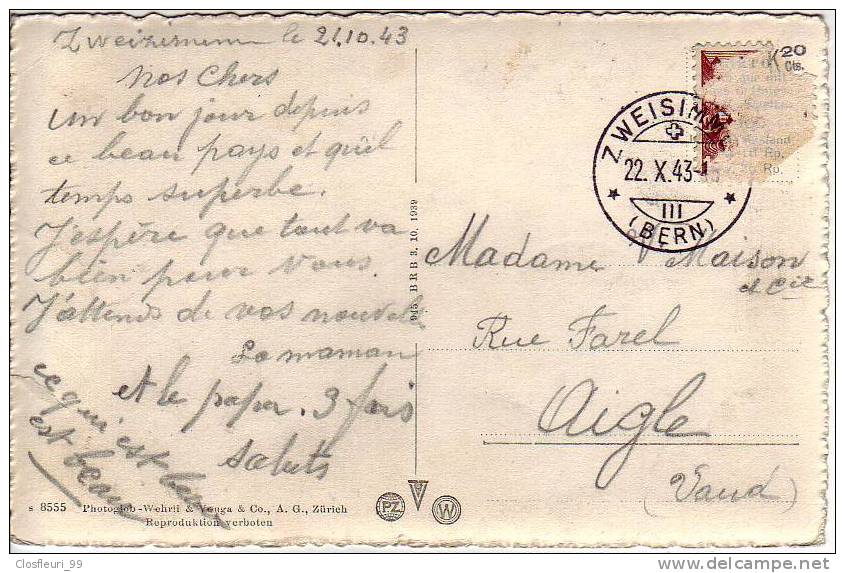 Zweizisemen le 21.10.43
Nos Chers
Un bon jour depuis
ce beau pays et qu'el
temps superbe.
J'espère que tout va
bien pour vous.
J'attends de vos nouvelles
La maman
et le papa. 3 fois
saluts
ce qui est beau
est beau
s 8555 Photoglob-Wehrli & Vouga & Co., A. G., Zürich
Reproduktion verboten
945 BRB 3. 10. 1939
PZ V W
20
Cts.
ZWEISIMM
22. X. 43
III
(BERN)
Madame Maison
et Cie
Rue Farel
Aigle
(Vaud)
Closfleuri_99